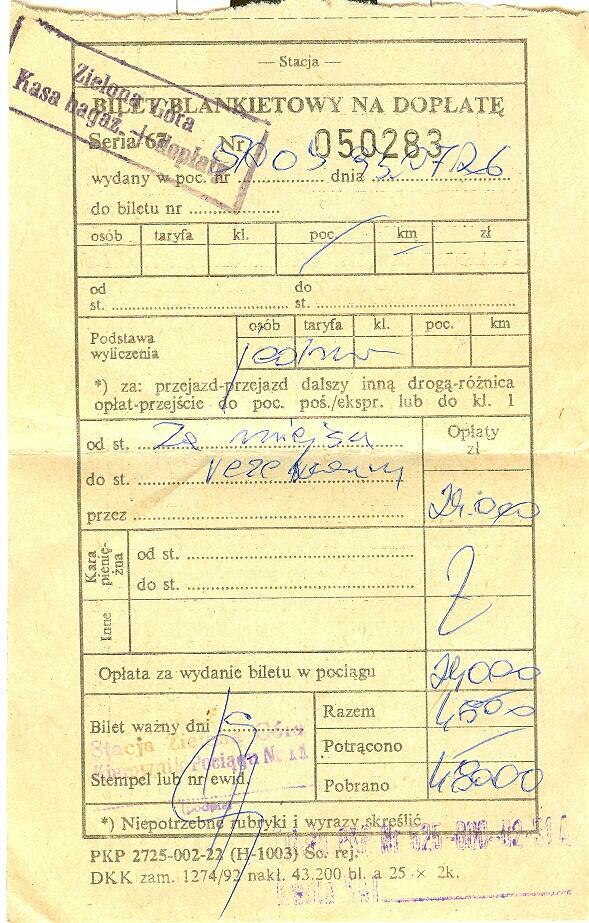 — Stacja —
Zielona Góra
Kasa bagaż. - dopłat
BILET BLANKIETOWY NA DOPŁATĘ
Seria/67 Nr 050283
wydany w poc. nr dnia
do biletu nr
osób taryfa kl. poc. km zł
od do
st. st.
osób taryfa kl. poc. km
Podstawa
wyliczenia
*) za: przejazd-przejazd dalszy inną drogą-różnica
opłat-przejście do poc. poś./ekspr. lub do kl. 1
Opłaty
zł
od st. Za miejsca
do st.
przez
Kara pienięż-na
od st.
do st.
Inne
Opłata za wydanie biletu w pociągu
Bilet ważny dni
Razem
Potrącono
Stacja Zielona Góra
Kierownik Pociągu Nr 11
Stempel lub nr ewid.
Pobrano 48000
*) Niepotrzebne rubryki i wyrazy skreślić
PKP 2725-002-22 (H-1003) So. rej.
DKK zam. 1274/92 nakł. 43.200 bl. a 25 × 2k.